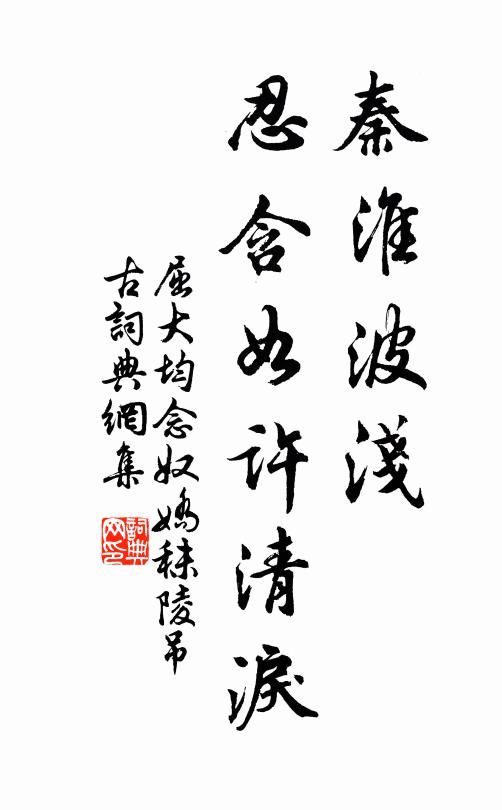 秦淮波淺
忍含如許清淚
屈大均念奴嬌秣陵吊
古詞典網集
詞典网印